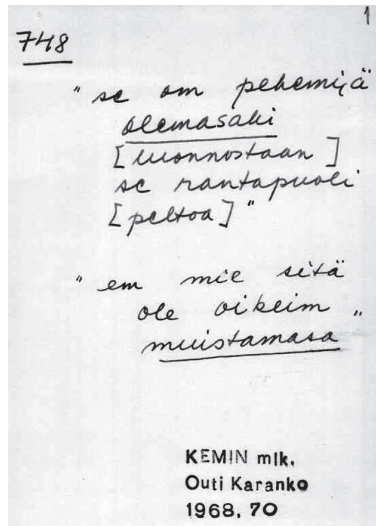 1
748
"se om pehemijä
olemasahi
[luonnostaan]
se rantapuoli
[peltoa]"
"em mie sitä
ole oikeim "
muistamasa
KEMIN mlk.
Outi Karanko
1968, 70